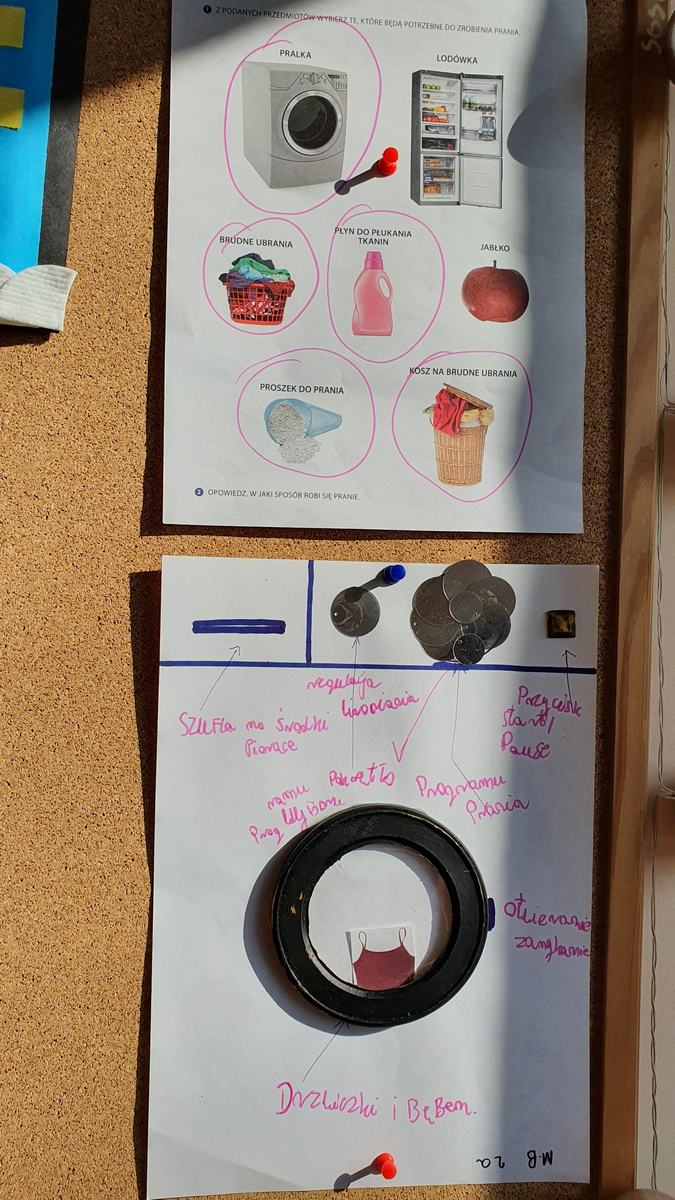 1 Z PODANYCH PRZEDMIOTÓW WYBIERZ TE, KTÓRE BĘDĄ POTRZEBNE DO ZROBIENIA PRANIA.
PRALKA
LODÓWKA
BRUDNE UBRANIA
PŁYN DO PŁUKANIA
TKANIN
JABŁKO
PROSZEK DO PRANIA
KOSZ NA BRUDNE UBRANIA
2 OPOWIEDZ, W JAKI SPOSÓB ROBI SIĘ PRANIE.
SZUFLA na środki
Piorące
regulacja
Przycisk
start/
Pause
Pokrętło
Programu
Prania
otwieranie
zamykanie
Drzwiczki i BęBen.
M.B 2a